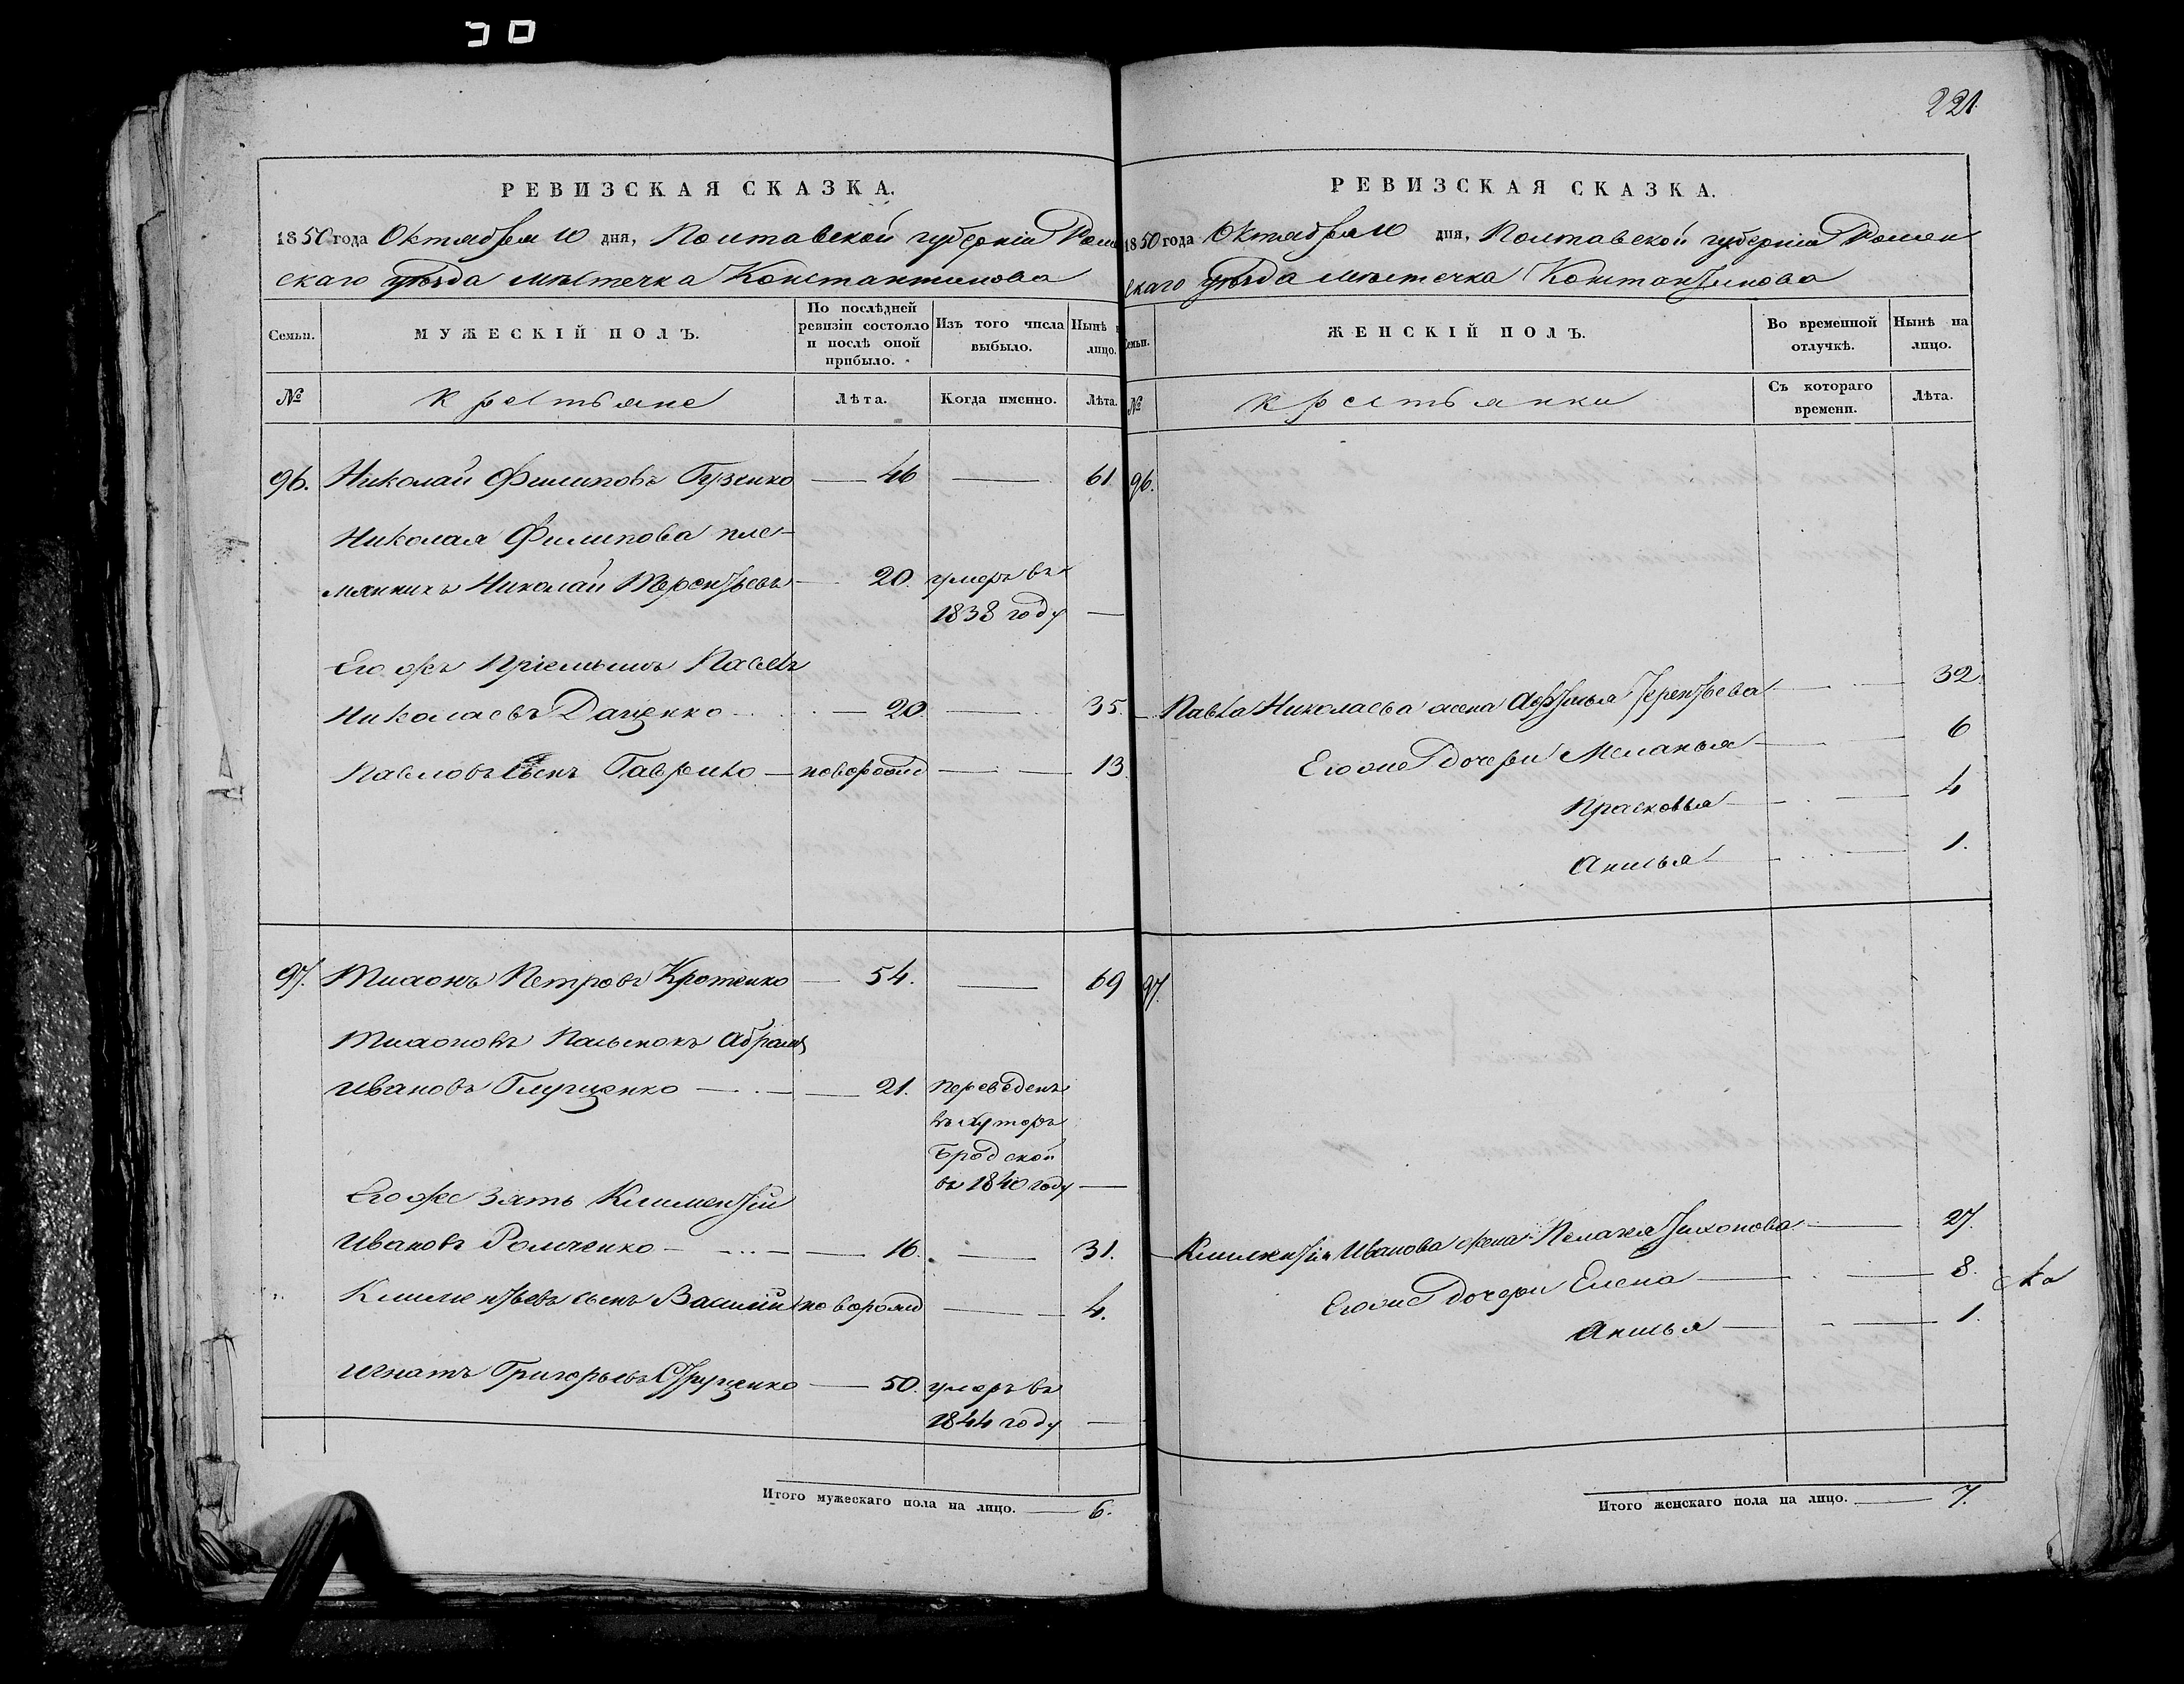 221
РЕВИЗСКАЯ СКАЗКА.
1850 года Октября 10 дня, Полтавской губерніи Ромен
скаго уѣзда мѣстечка Константинова
Семьи. МУЖЕСКІЙ ПОЛЪ. По послѣдней ревизіи состояло и послѣ оной прибыло. Изъ того числа выбыло. Нынѣ на лицо.
№ Крестьяне Лѣта. Когда именно. Лѣта.
96. Николай Филиповъ Гузенко — 46 — 61
Николая Филипова пле-
мянникъ Николай Терентьевъ — 20. умеръ въ
1838 году —
Его жъ пріемышъ Павелъ
Николаевъ Даценко — 20 — 35.
Павловъ сынъ Гаврило — новорожд — 13
97. Тихонъ Петровъ Кротенко — 54. — 69
Тихоновъ пасынокъ Абрамъ
Ивановъ Глущенко — 21. переведенъ
въ хуторъ
Бродской
въ 1840 году —
Его же зять Климентій
Ивановъ Ромченко — 16. — 31.
Климентьевъ сынъ Василій новорожд — 4.
Игнатъ Григорьевъ — 50. умеръ въ
1844 году —
Итого мужескаго пола на лицо. — 6.
РЕВИЗСКАЯ СКАЗКА.
1850 года Октября 10 дня, Полтавской губерніи Ромен
скаго уѣзда мѣстечка Константинова
Семьи. ЖЕНСКІЙ ПОЛЪ. Во временной отлучкѣ. Нынѣ на лицо.
№ Крестьянки Съ котораго времени. Лѣта.
96.
Павла Николаева жена Афимья Терентьева — 32.
Его же дочери Меланья — 6
Прасковья — 4
Анисья — 1.
97.
Климентія Иванова жена Пелагея Тихонова — 27.
Его же дочери Елена — 8.
Анисья — 1.
Итого женскаго пола на лицо. — 7.